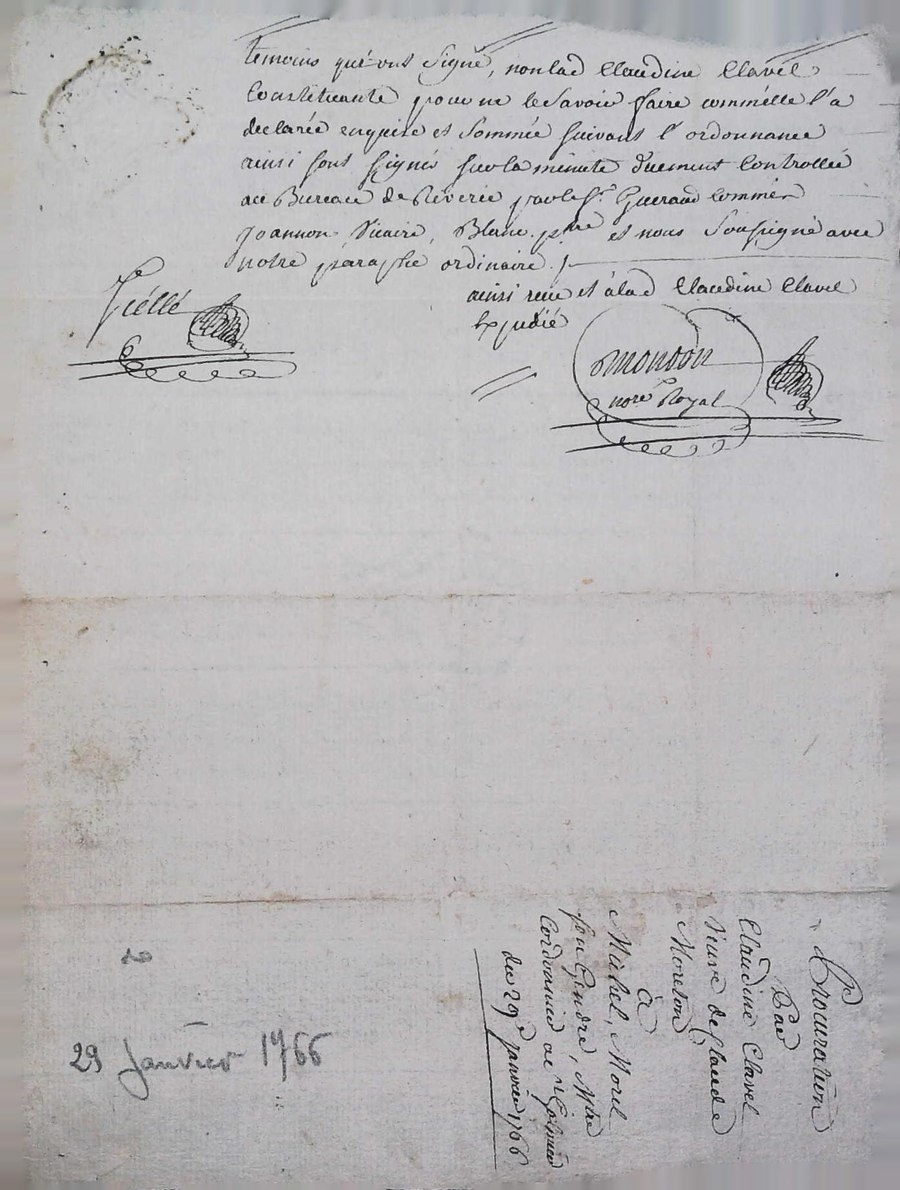 temoins qui ont signé, non lad Claudine Clavel
Constituante pour ne le savoir faire comm'elle l'a
declarée enquise et sommée suivant l'ordonnance
ainsi sont signés sur la minute duement Controllée
au Bureau de Riverie par le Sr. Gueraud Commis
Joannon Vicaire, Blanc ptre et nous soussigné avec
notre paraphe ordinaire ./.
ainsi reçu et à lad Claudine Clavel
Expedié
Viellé
Mondon
nore Royal
Procuration
Par
Claudine Clavel
veuve de Claude
Moreton
à
Michel, Morel
son Gendre, Mtre
Cordonnier
du 29e janvier 1766
29 Janvier 1766